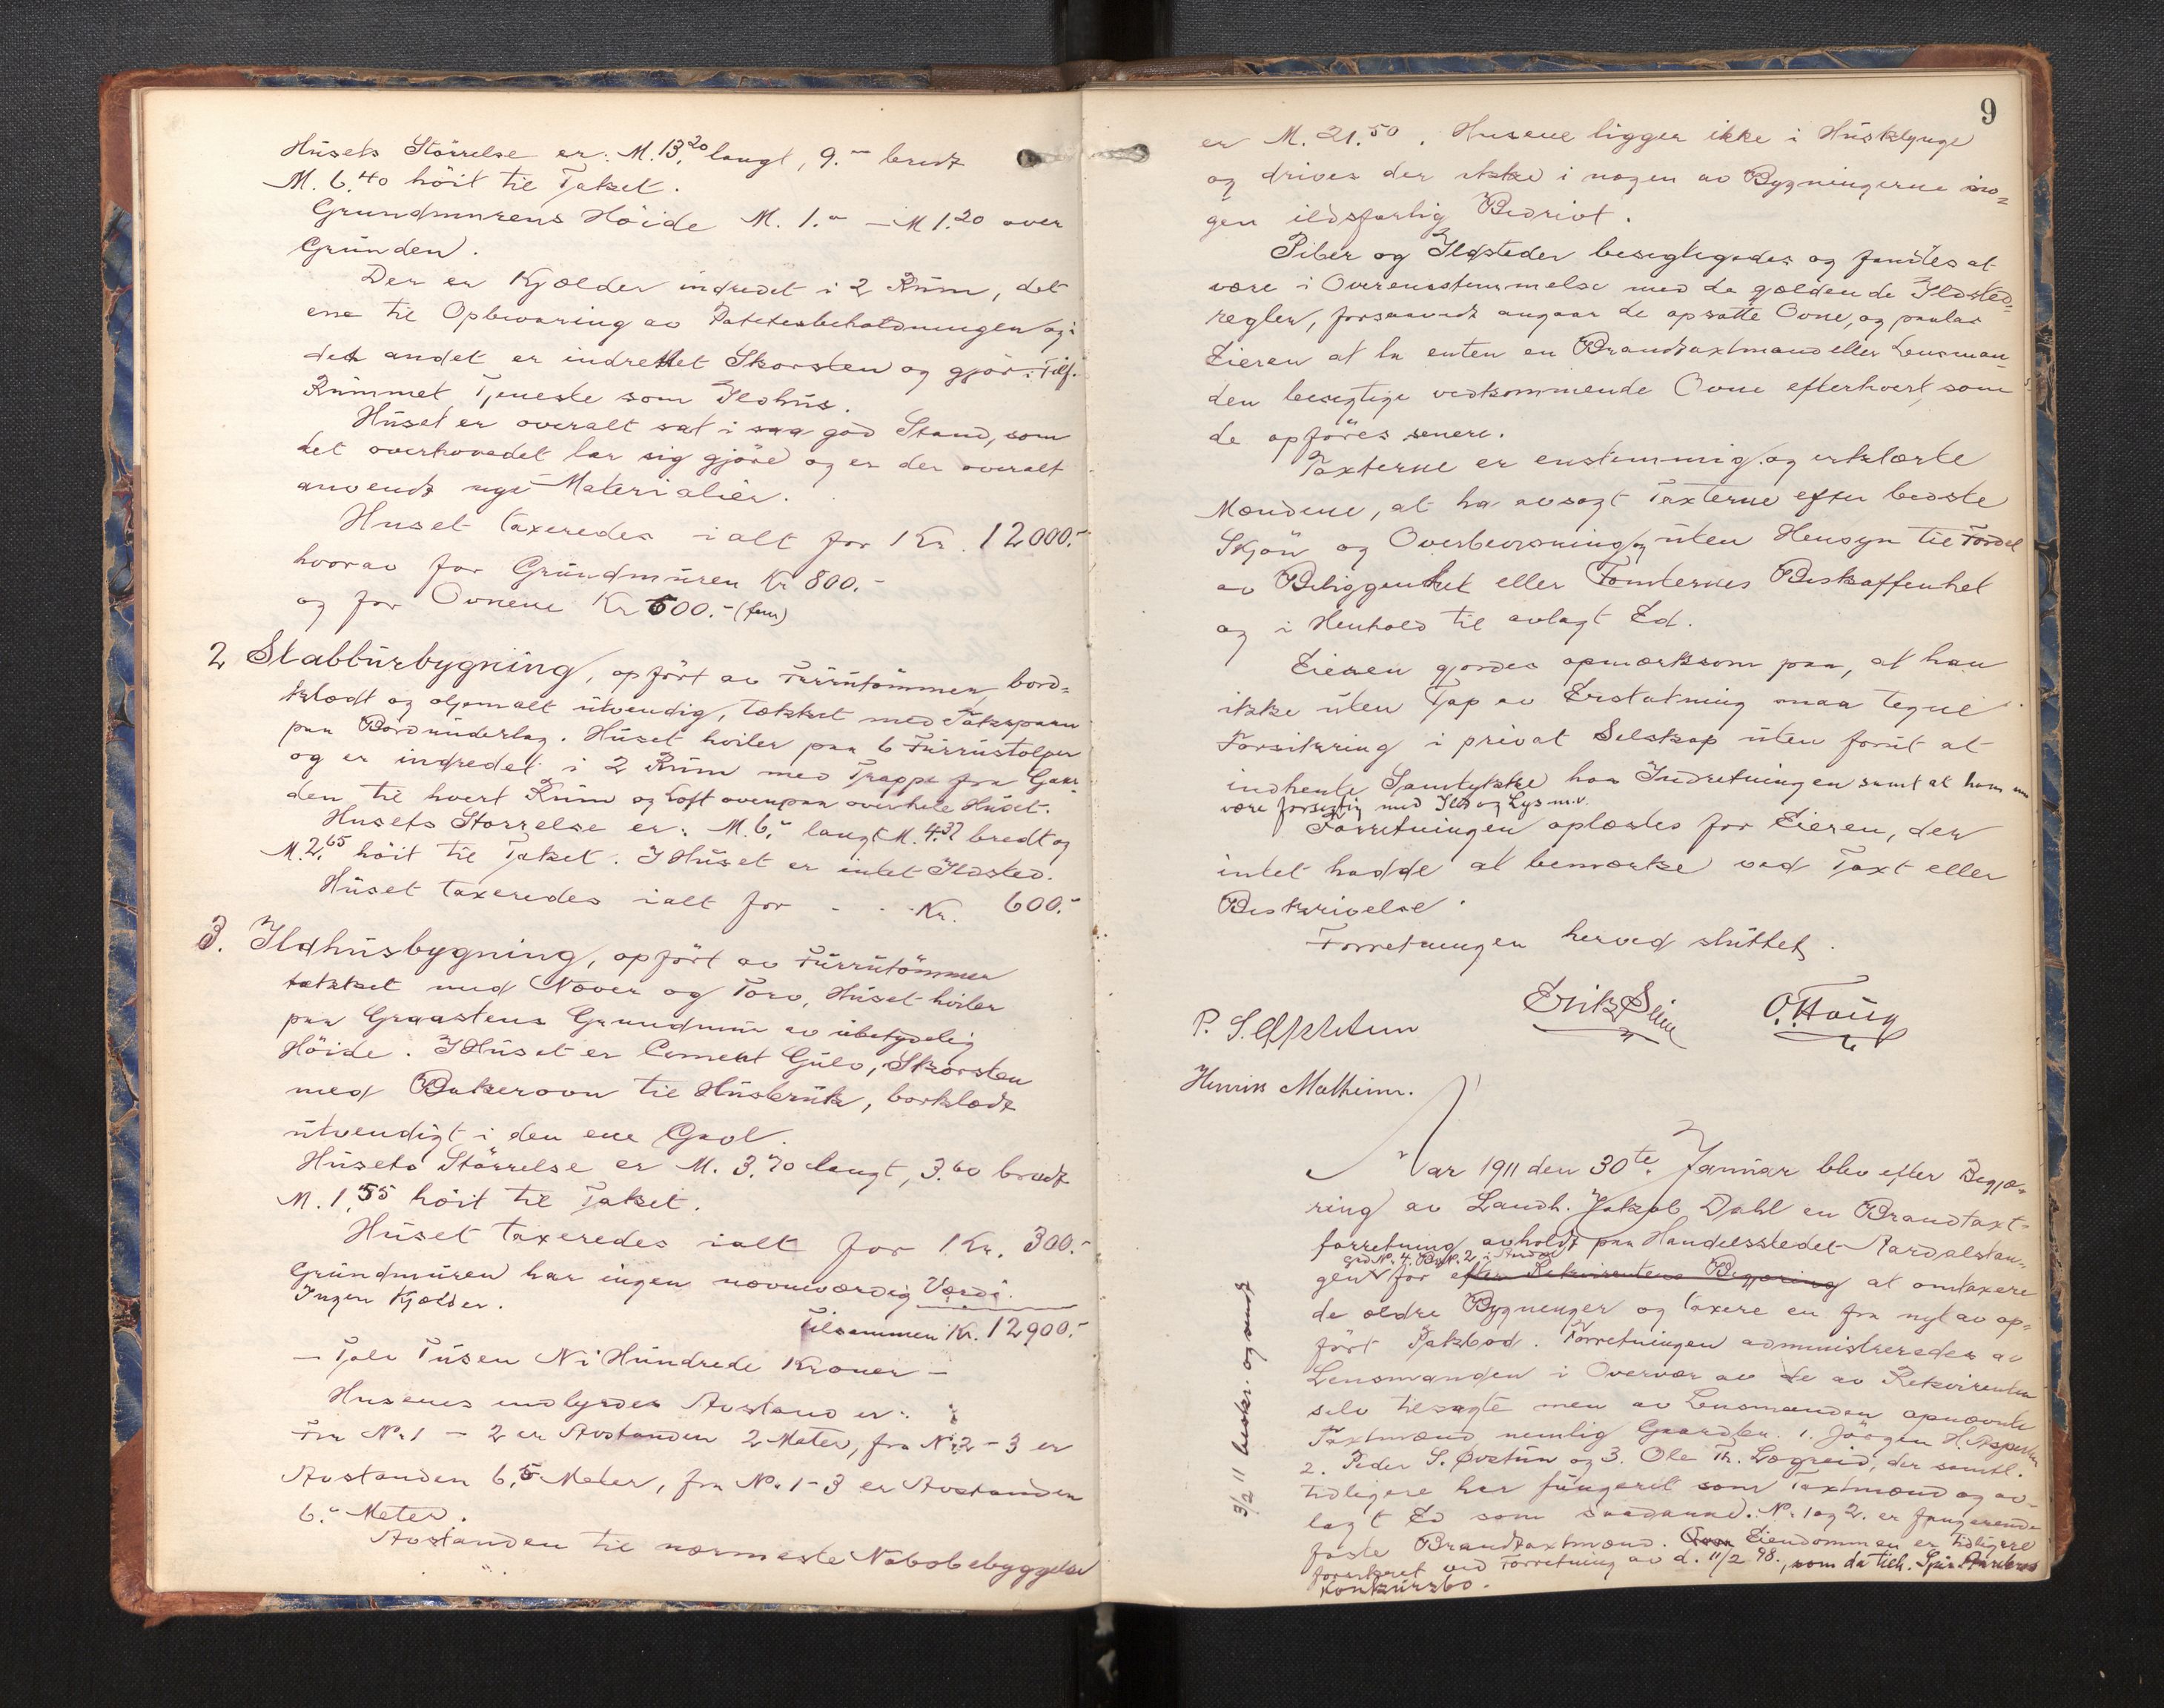 Húsets Störrelse er: M. 13,20 langt, 9.- bredt
M. 6,40 höit til Taket.
Grundmurens Höide M. 1.- – M 1.20 over
Grúnden.
Der er Kjælder indredet i 2 Rúm, det
ene til Opbevaring av Potetesbeholdningen og i
det andet er indrettet Skorsten og gjör
Rúmmet Tjeneste som Ildhús.
Húset er overalt sat i saa god Stand, som
det overhovedet lar sig gjöre og er der overalt
anvendt nye Materialier.
Huset taxeredes ialt for Kr. 12000.-
hvorav for Grúndmúren Kr 800.-
og for Ovnene Kr 500.- (fem)
2 Stabbúrbygning, opfört av Fúrrútömmer bord=
klædt og oljemalt útvendig, tækket med Takspaan
paa Bordúnderlag. Húset hviler paa 6 Fúrrústolper
og er indredet i 2 Rúm med Trappe fra Gaar-
den til hvert Rúm og Loft ovenpaa over hele Húset.
Húsets Störrelse er: M. 6.- langt M. 4.37 bredt og
M. 2,65 höit til Taket. I Húset er intet Ildsted.
Húset taxeredes ialt for - - - Kr. 600.-
3. Ildhúsbygning, opfört av Fúrrútömmer
tækket med Næver og Torv, Húset hviler
paa Graastens Grundmúr av úbetydelig
Höide. I Húset er Cement Gúlv, Skorsten
med Bakerovn til Húsbrúk, borklædt
útvendigt i den ene Gavl.
Húsets Störrelse er M. 3.70 langt, 3.60 bredt
M. 1,55 höit til Taket.
Húset taxeredes ialt for Kr. 300.-
Grúndmúren har ingen nævneværdig Værdi.
Ingen Kjælder.
Tilsammen Kr. 12900.-
– Tolv Túsen Ni Húndrede Kroner –
Husenes indbyrdes Avstand er:
Fra No 1 – 2 er Avstanden 2 Meter, fra No 2 – 3 er
Avstanden 6,5 Meter, fra No 1 – 3 er Avstanden
6.- Meter.
Avstanden til nærmeste Nabobebyggelse
9
er M. 21.50. Husene ligger ikke i Húsklynge
og drives der ikke i nogen av Bygningerne no=
gen ildsfarlig Bedrivt.
Piber og Ildsteder besigtigedes og fandtes at
være i Overensstemmelse med de gældende Ildsted=
regler, forsaavidt angaar de opsatte Ovne, og paalas
Eieren at la enten en Brandtaxtmand eller Lensman-
den besigtige vedkommende Ovne efterhvert, som
de opföres senere.
Taxterne er enstemmig og erklærte
Mændene, at ha avsagt Taxterne efter bedste
Skjön og Overbevisning og úten Hensyn til Fordel
av Beliggenhet eller Tomternes Beskaffenhet
og i Henhold til avlagt Ed.
Eieren gjordes opmærksom paa, at han
ikke úten Tap av Erstatning maa tegne
Forsikring i privat Selskap úten forút at
indhente Samtykke hos Indretningen samt at han maa
være forsigtig med Ild og Lys m.v.
Forretningen oplæstes for Eieren, der
intet hadde at bemærke ved Taxt eller
Beskrivelse.
Forretningen herved slúttet.
Henrik Matheim.
Aar 1911 den 30te Janúar blev efter Begjæ=
ring av Landh. Jakob Dahl en Brandtaxt-
forretning avholdt paa Handelsstedet Aardalstan-
gen Grd No. 4. Br. No. 2 i Aardal for efter Rekvirentens Begjæring at omtaxere
de ældre Bygninger og taxere en fra nyt av op=
fört Pakbod. Forretningen administreredes av
Lensmanden i Overvær av de av Rekvirenten
selv tilsagte men av Lensmanden opnævnte
Taxtmænd nemlig Gaardbr. 1. Jörgen H. Asperheim
2. Peder S. Øvstún og 3. Ole Th. Lægreid, der samtl.
tidligere har fúngerit som Taxtmænd og av-
lagt Ed som saadanne. No. 1 og 2. er fungerende
faste Brandtaxtmænd. Eiendommen er tidligere
forsikret ved Forretning av d. 11/2 98., som da tilh.
Konkúrsbo.
3/2 11 beskr. og sendt